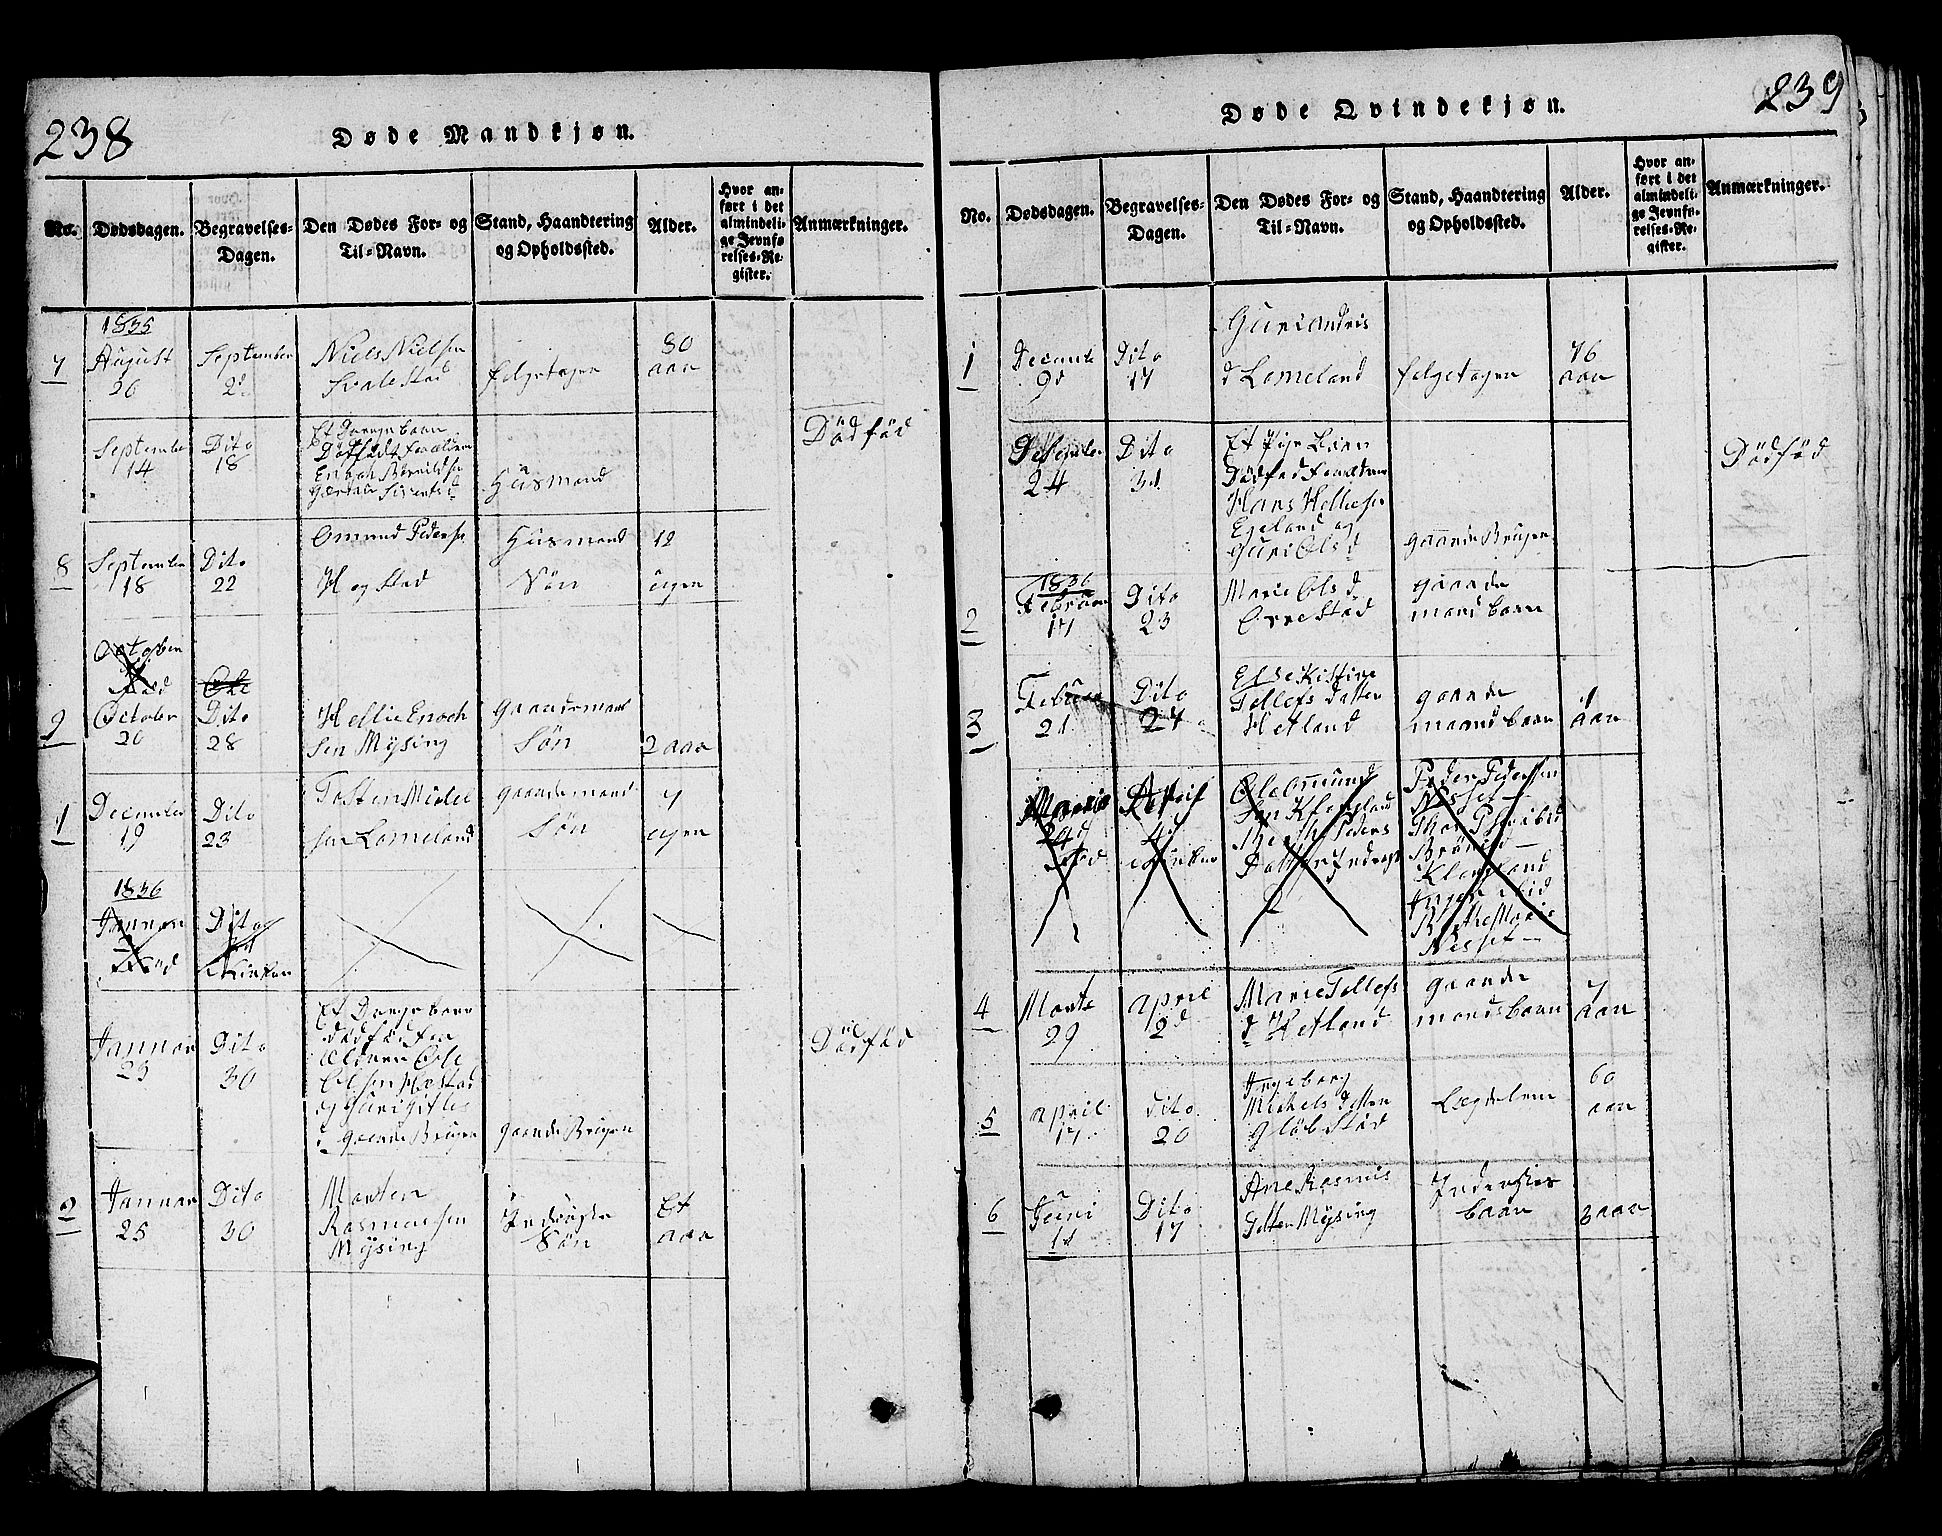 238
Døde Mandkjøn.
No.
Dødsdagen.
Begravelses-
Dagen.
Den Dødes For- og
Til-Navn.
Stand, Haandtering
og Opholdssted.
Alder.
Hvor an-
ført i det
almindeli-
ge Jevnfø-
relses-Re-
gister.
Anmærkninger.
1835
7
August
26
September
2d
Niels Nielsen
Svalestad
folgetagen
80
aar
September
14
Dito
18
Et Drenge baarn
Huusmand
Dödföd
8
September
18
Dito
22
Omund Pederse
Hogstad
Huusmand
Sön
12
ugen
October
Död
9
October
20
Dito
28
Hellie Enoch
sen Mÿsing
Gaardemand
Sön
2 aar
1
December
19
Dito
23
Tosten Mickel
sen Lomeland
gaardemand
Sön
7
ugen
1836
Januar
Död
Dito
Januar
23
Dito
30
Et Drengebarn
dödföd For
ældren Ole
Olsen Hæstad
og Guri
gaardeBrugen
gaardeBrugen
Dödföd
2
Januar
25
Dito
30
Morten
Rasmusen
Mÿsing
Inderste
Sön
Et
aar
239
Døde Qvindekjøn.
No.
Dødsdagen.
Begravelses-
Dagen.
Den Dødes For- og
Til-Navn.
Stand, Haandtering
og Opholdssted.
Alder.
Hvor an-
ført i det
almindeli-
ge Jevnfø-
relses-Re-
gister.
Anmærkninger.
1
Decembe
9d
Dito
17
Guri Andris
d Lomeland
folgetagen
76
aar
December
24
Dito
31
Et Pige Barn
Dödfød Forældrene
Hans Helliesen
Egeland og
Guri Ols d
gaardeBrugen
Dödföd
1836
2
Februar
17
Dito
23
Marie Ols d
Orrestad
gaarde
mand barn
3
Februar
21
Dito
27
Else Kistine
Tollefs Datter
Hetland
gaarde
maand barn
1
aar
29
Död
4
Ole Omund
sen Klungland
Peders
Datter
Peder Pedersen
Nesset
Klungland
Nesset
4
Marts
29
april
2d
Marie Tollefs
d Hetland
gaarde
mandsbarn
7
aar
5
april
17
dito
20
Ingeborg
Mickels datter
Gløbstad
Lægdslem
60
aar
6
Juni
11
Dito
17
Ane Rasmus
datter Mÿsing
Inderstes
baan
3 aar